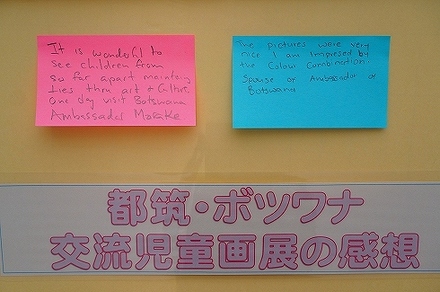 It is wonderful to
see children from
so far apart maintain
ties thru art & Culture.
One day visit Botswana
Ambassador
The pictures were very
nice I am impresed by
the Colour Combination.
Spouse of Ambassador of
Botswana
都筑・ボツワナ
交流児童画展の感想